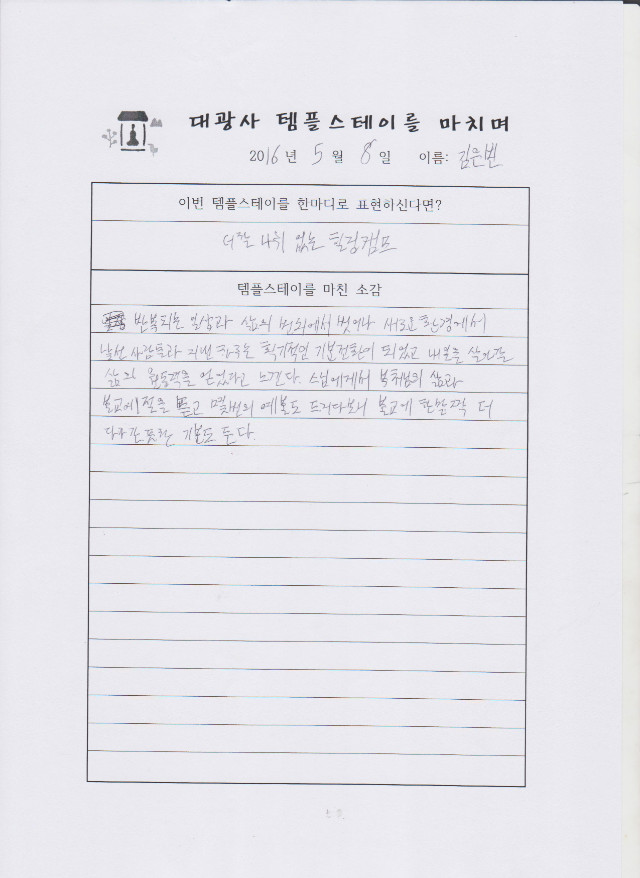 대광사 템플스테이를 마치며
2016년 5월 8일 이름: 김은빈
이번 템플스테이를 한마디로 표현하신다면?
더할 나위 없는 힐링캠프
템플스테이를 마친 소감
반복되는 일상과 삶의 번뇌에서 벗어나 새로운 환경에서
낯선 사람들과 지낸 하루는 획기적인 기분전환이 되었고 내일을 살아갈
삶의 원동력을 얻었다고 느낀다. 스님에게서 부처님의 삶과
불교예절을 듣고 몇번의 예불도 드리다보니 불교에 한발짝 더
다가간 듯한 기분도 든다.